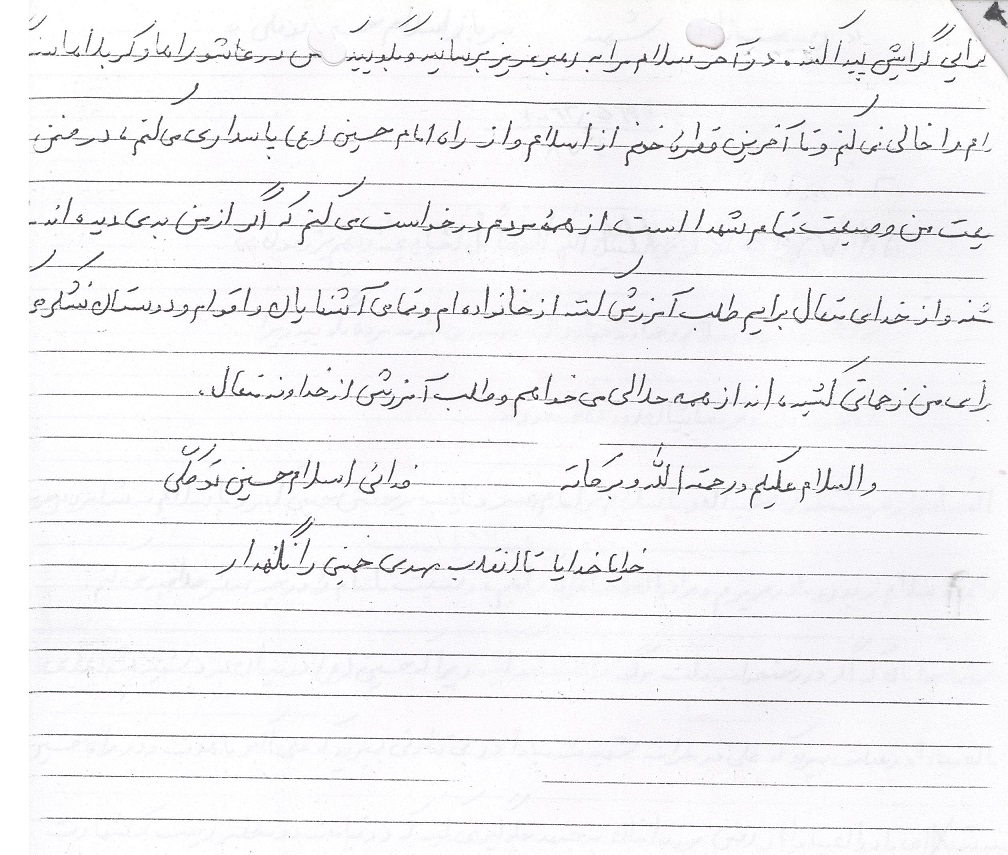 برایی گرایش پیدا کنند. در آخر سلام مرا به رهبر عزیز برسانید و بگویید من در عاشورا ها و کربلا ها
را خالی نمی کنم و تا آخرین قطره خونم از اسلام و از راه امام حسین (ع) پاسداری می کنم، در ضمن
یت من وصیت تمام شهدا است از همهٔ مردم درخواست می کنم که اگر از من بدی دیده اند
شند و از خدای متعال برایم طلب آمرزش کنند از خانواده ام و تمامی آشنایان و اقوام و دوستان تشکر
رای من زحماتی کشیده اند از همه حلالی می خواهم و طلب آمرزش از خداوند متعال.
والسلام علیکم و رحمة الله و برکاته
فدائی اسلام حسین توکلّی
خدایا خدایا تا انقلاب مهدی خمینی را نگهدار